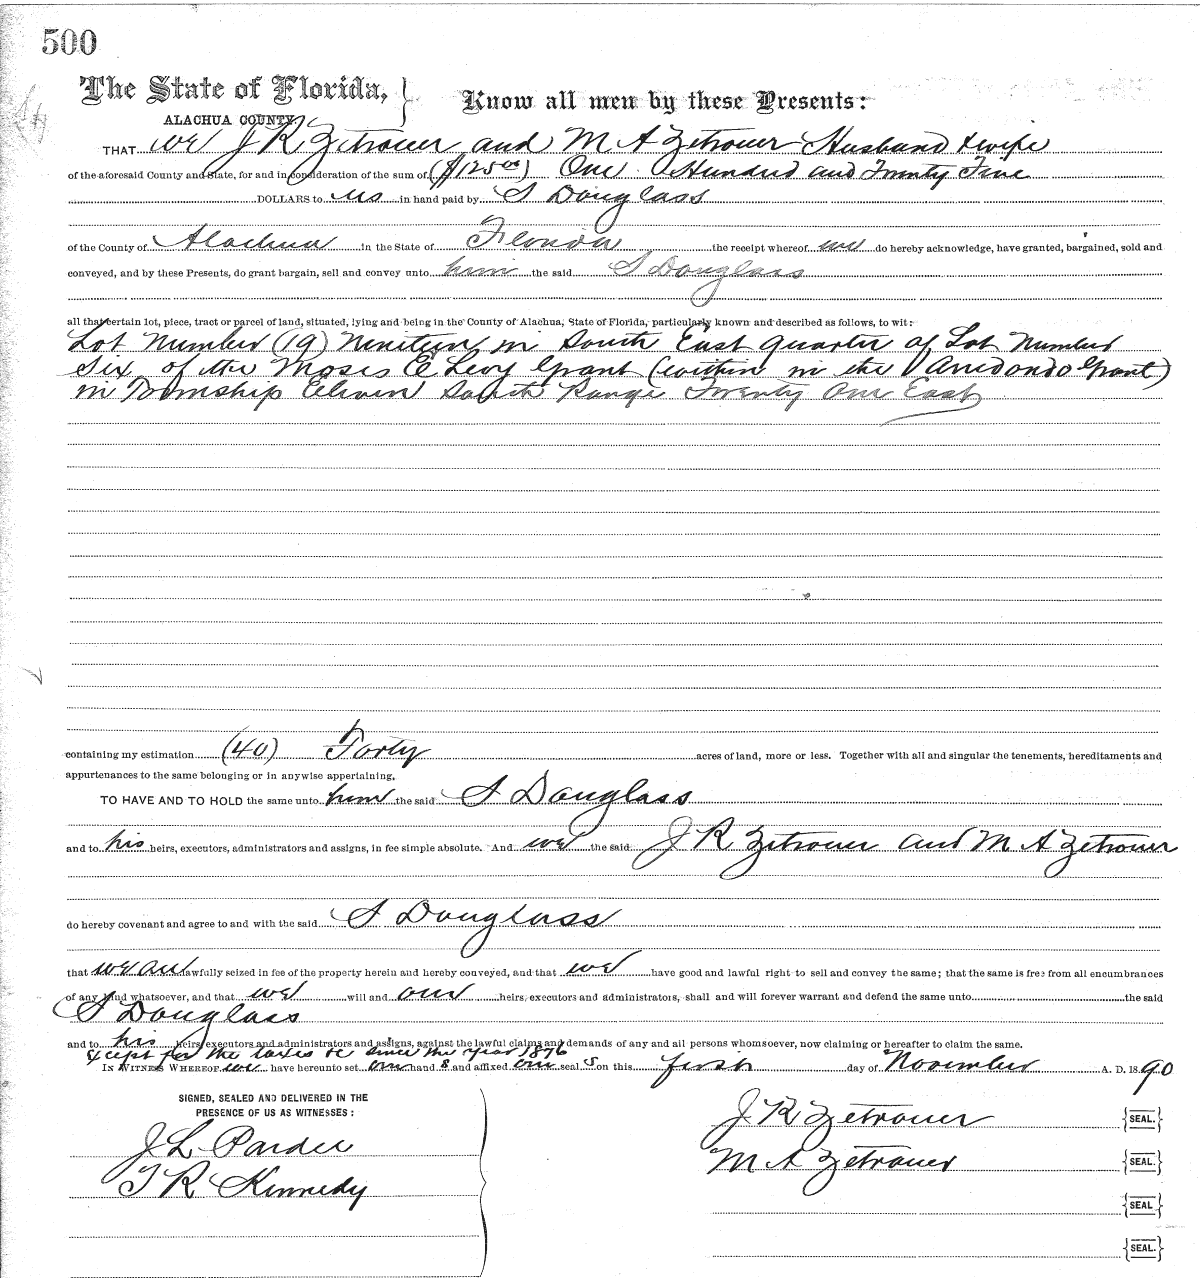 500
The State of Florida,
ALACHUA COUNTY.
Know all men by these Presents:
THAT we J R Zetrouer and M A Zetrouer Husband & wife
of the aforesaid County and State, for and in consideration of the sum of ($125 00) One Hundred and Twenty Five
DOLLARS to us in hand paid by S Douglass
of the County of Alachua in the State of Florida the receipt whereof we do hereby acknowledge, have granted, bargained, sold and
conveyed, and by these Presents, do grant bargain, sell and convey unto him the said S Douglass
all that certain lot, piece, tract or parcel of land, situated, lying and being in the County of Alachua, State of Florida, particularly known and described as follows, to wit:
Lot Number (19) Nineteen in South East quarter of Lot Number
Six of the Moses E Levy Grant (within in the Arredondo Grant)
in Township Eleven South Range Twenty One East
containing my estimation (40) Forty acres of land, more or less. Together with all and singular the tenements, hereditaments and
appurtenances to the same belonging or in anywise appertaining.
TO HAVE AND TO HOLD the same unto him the said S Douglass
and to his heirs, executors, administrators and assigns, in fee simple absolute. And we the said J R Zetrouer and M A Zetrouer
do hereby covenant and agree to and with the said S Douglass
that we are lawfully seized in fee of the property herein and hereby conveyed, and that we have good and lawful right to sell and convey the same; that the same is free from all encumbrances
of any kind whatsoever, and that we will and our heirs, executors and administrators, shall and will forever warrant and defend the same unto the said
S Douglass
and to his heirs, executors and administrators and assigns, against the lawful claims and demands of any and all persons whomsoever, now claiming or hereafter to claim the same.
Except for the taxes &c since the year 1876
IN WITNESS WHEREOF we have hereunto set our hand s and affixed our seal s on this first day of November A. D. 1890
SIGNED, SEALED AND DELIVERED IN THE
PRESENCE OF US AS WITNESSES:
J L Pardee
T R Kennedy
J R Zetrouer {SEAL.}
M A Zetrouer {SEAL.}
{SEAL.}
{SEAL.}